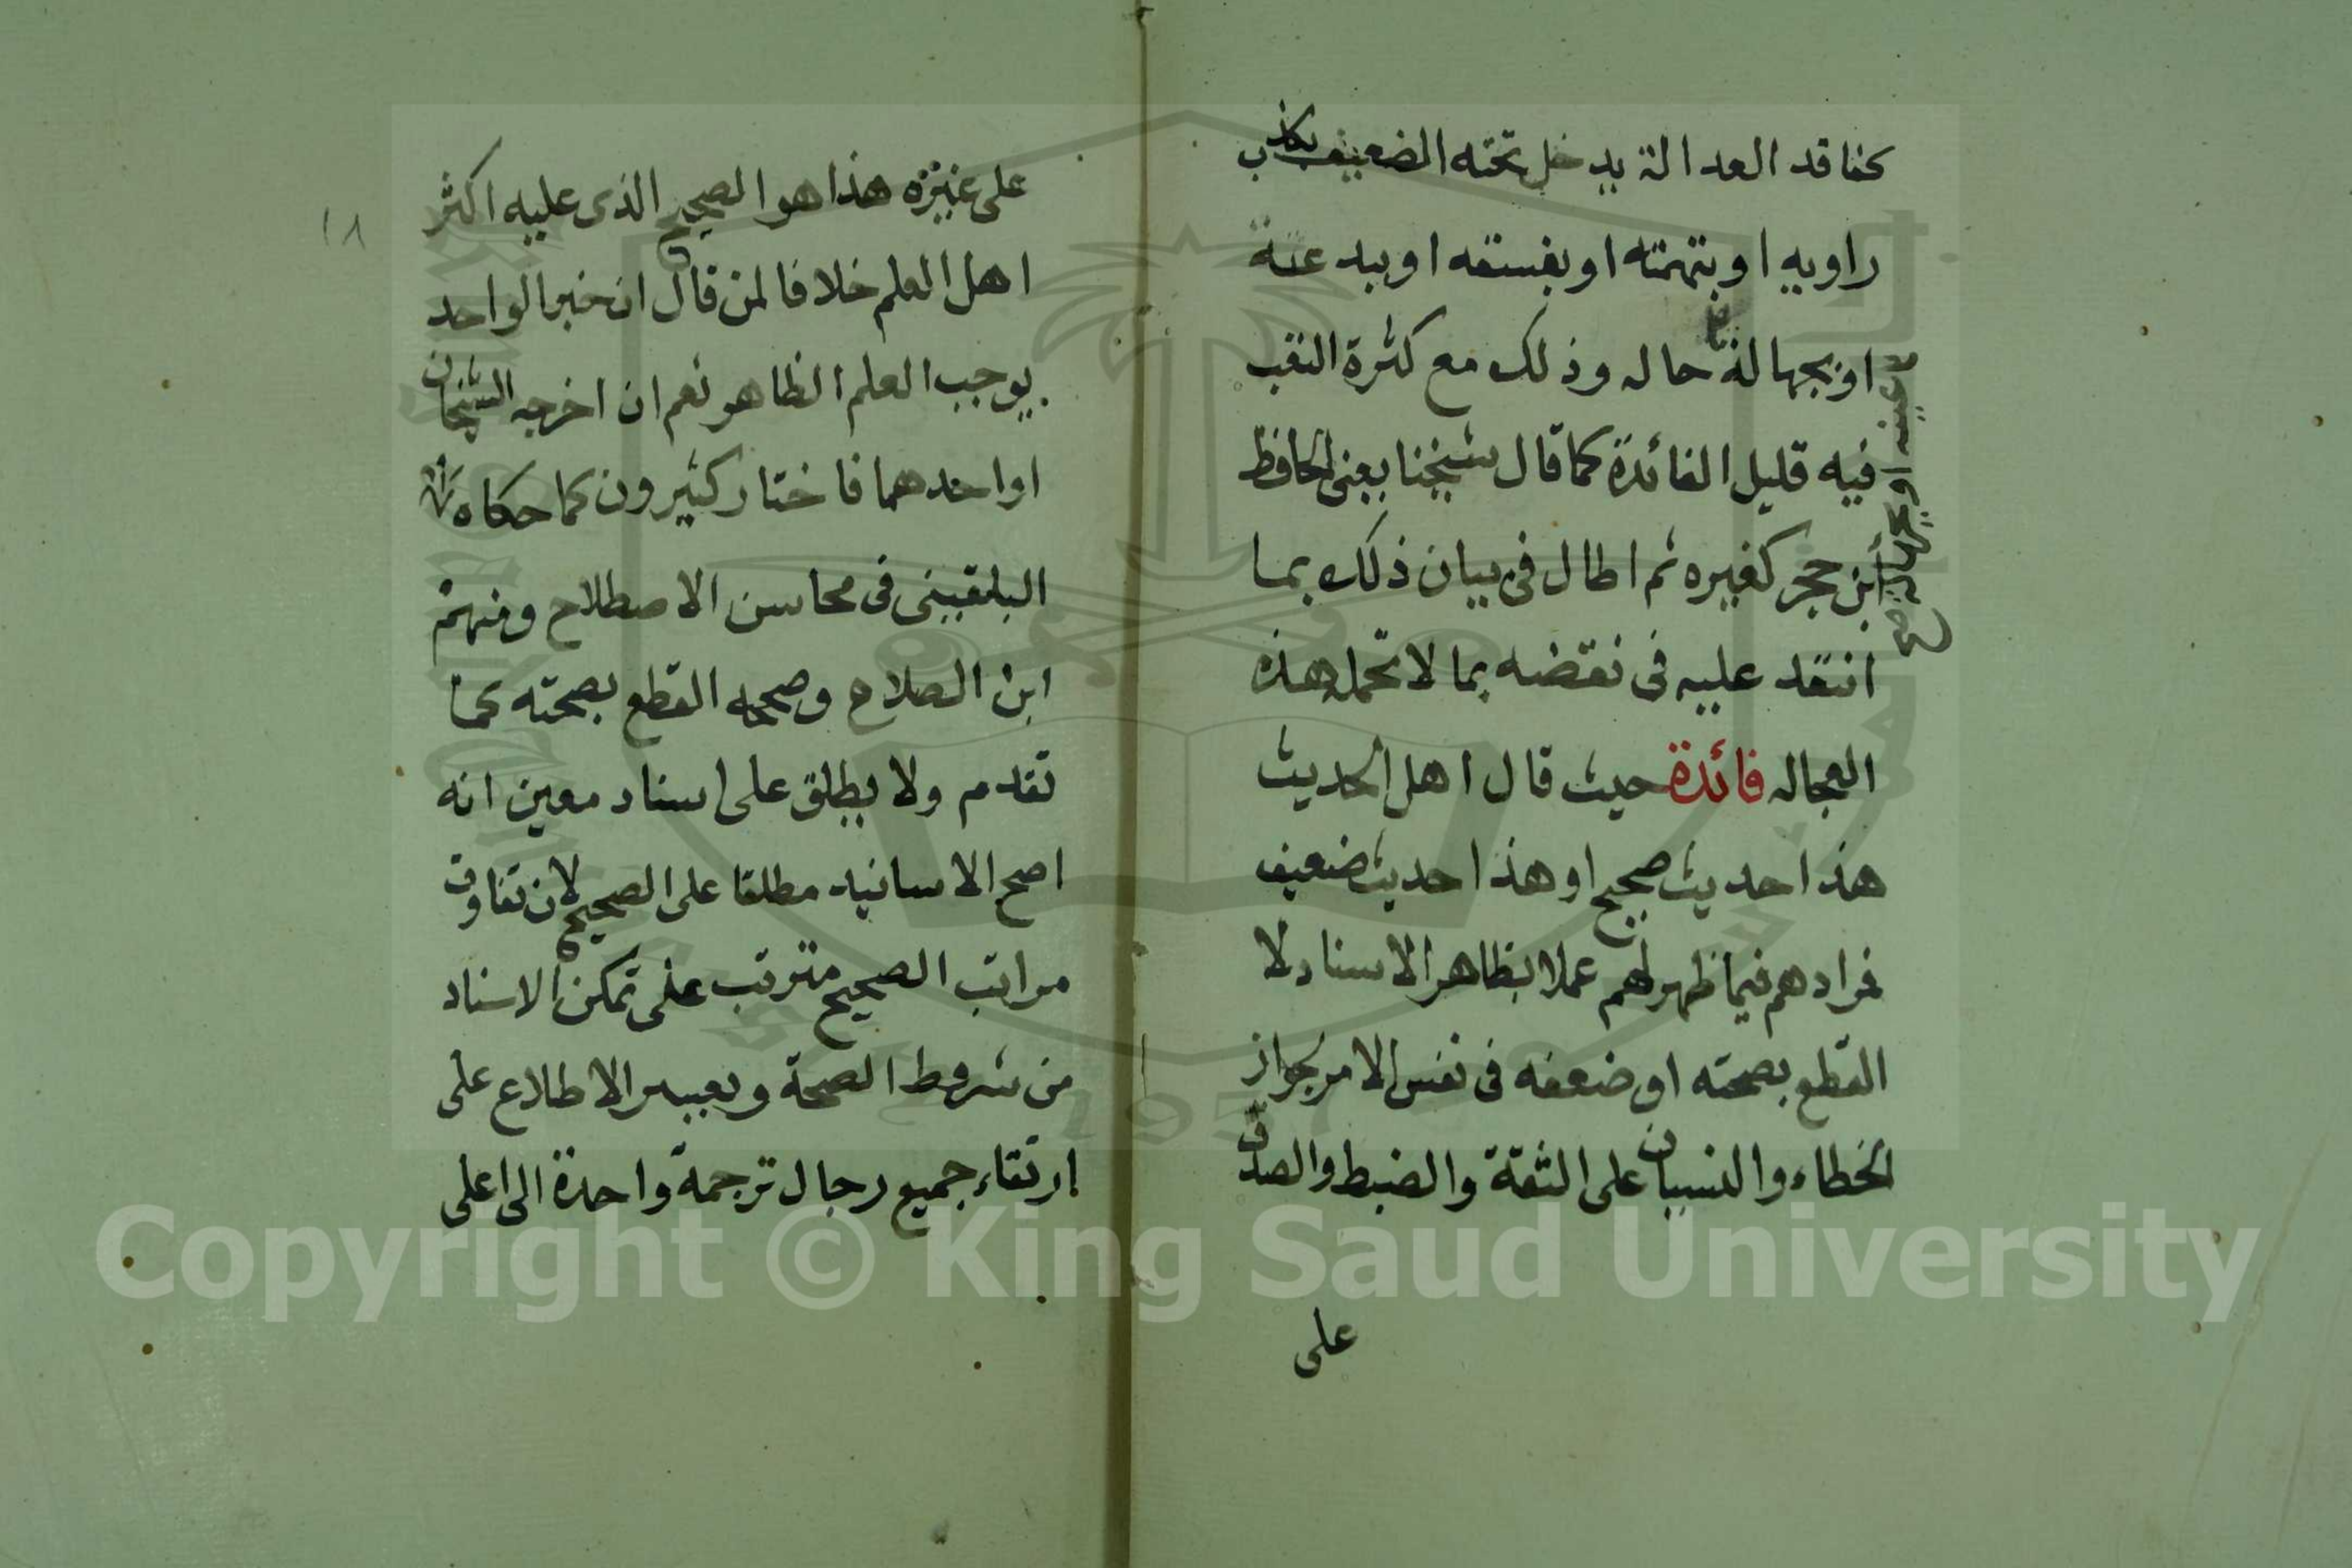 كفاقد العدالة يدخل تحته الضعيف بكذب
راويه او بتهمته او بفسقه او ببدعة
او بجهالة حاله وذلك مع كثرة التعب
عينه او بجهالة صح
فيه قليل الفائدة كما قال شيخنا يعنى الحافظ
ابن حجر كغيره ثم اطال فى بيان ذلك بما
انتقد عليه فى نقضه بما لا تحمله هذه
العجاله فائدة حيث قال اهل الحديث
هذا حديث صحيح او هذا حديث ضعيف
فمرادهم فيما ظهر لهم عملا بظاهر الاسناد لا
القطع بصحته او ضعفه فى نفس الامر لجواز
الخطاء والنسيان على الثقة والضبط والصدق
على
١٨
على غيره هذا هو الصحيح الذى عليه اكثر
اهل العلم خلافا لمن قال ان خبر الواحد
يوجب العلم الظاهر نعم ان اخرجه الشيخان
او احدهما فاختار كثيرون كما حكاه
البلقينى فى محاسن الاصطلاح ومنهم
ابن الصلاح وصححه القطع بصحته كما
تقدم ولا يطلق على اسناد معين انه
اصح الاسانيد مطلقا على الصحيح لان تفاوت
مراتب الصحيح مترتب على تمكن الاسناد
من شروط الصحة ويعسر الاطلاع على
ارتقاء جميع رجال ترجمة واحدة الى اعلى
Copyright © King Saud University
1957